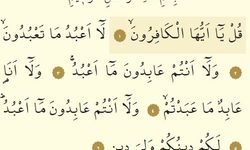 قُلْ يَٓا اَيُّهَا الْكَافِرُونَۙ ﴿١﴾ لَٓا اَعْبُدُ مَا تَعْبُدُونَۙ
﴿٢﴾ وَلَٓا اَنْتُمْ عَابِدُونَ مَٓا اَعْبُدُۚ ﴿٣﴾ وَلَٓا اَنَا۬
عَابِدٌ مَا عَبَدْتُمْۙ ﴿٤﴾ وَلَٓا اَنْتُمْ عَابِدُونَ مَٓا اَعْبُدُۜ
﴿٥﴾ لَكُمْ دِينُكُمْ وَلِيَ دِينِ ﴿٦﴾